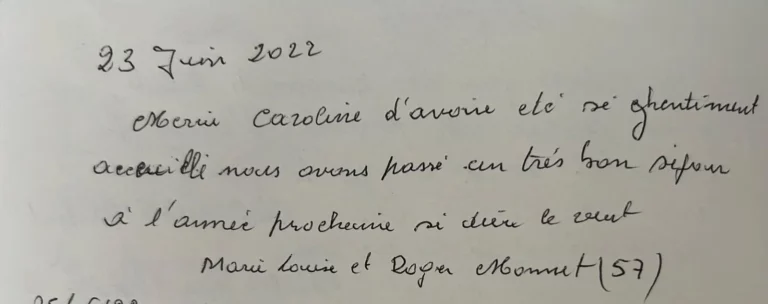 23 Juin 2022
Merci Caroline d'avoir eté si ghentiment
accueilli nous avons passé un trés bon séjour
à l'année prochaine si dieu le veut
Marie Louise et Roger (57)